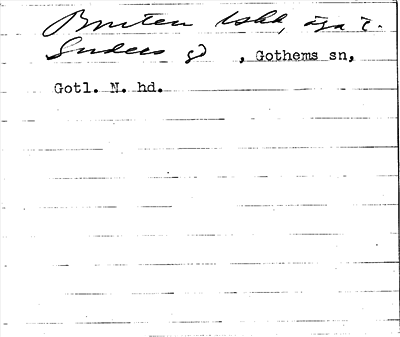 Bruten , äga t.
Suders , Gothems sn,
Gotl. N. hd.